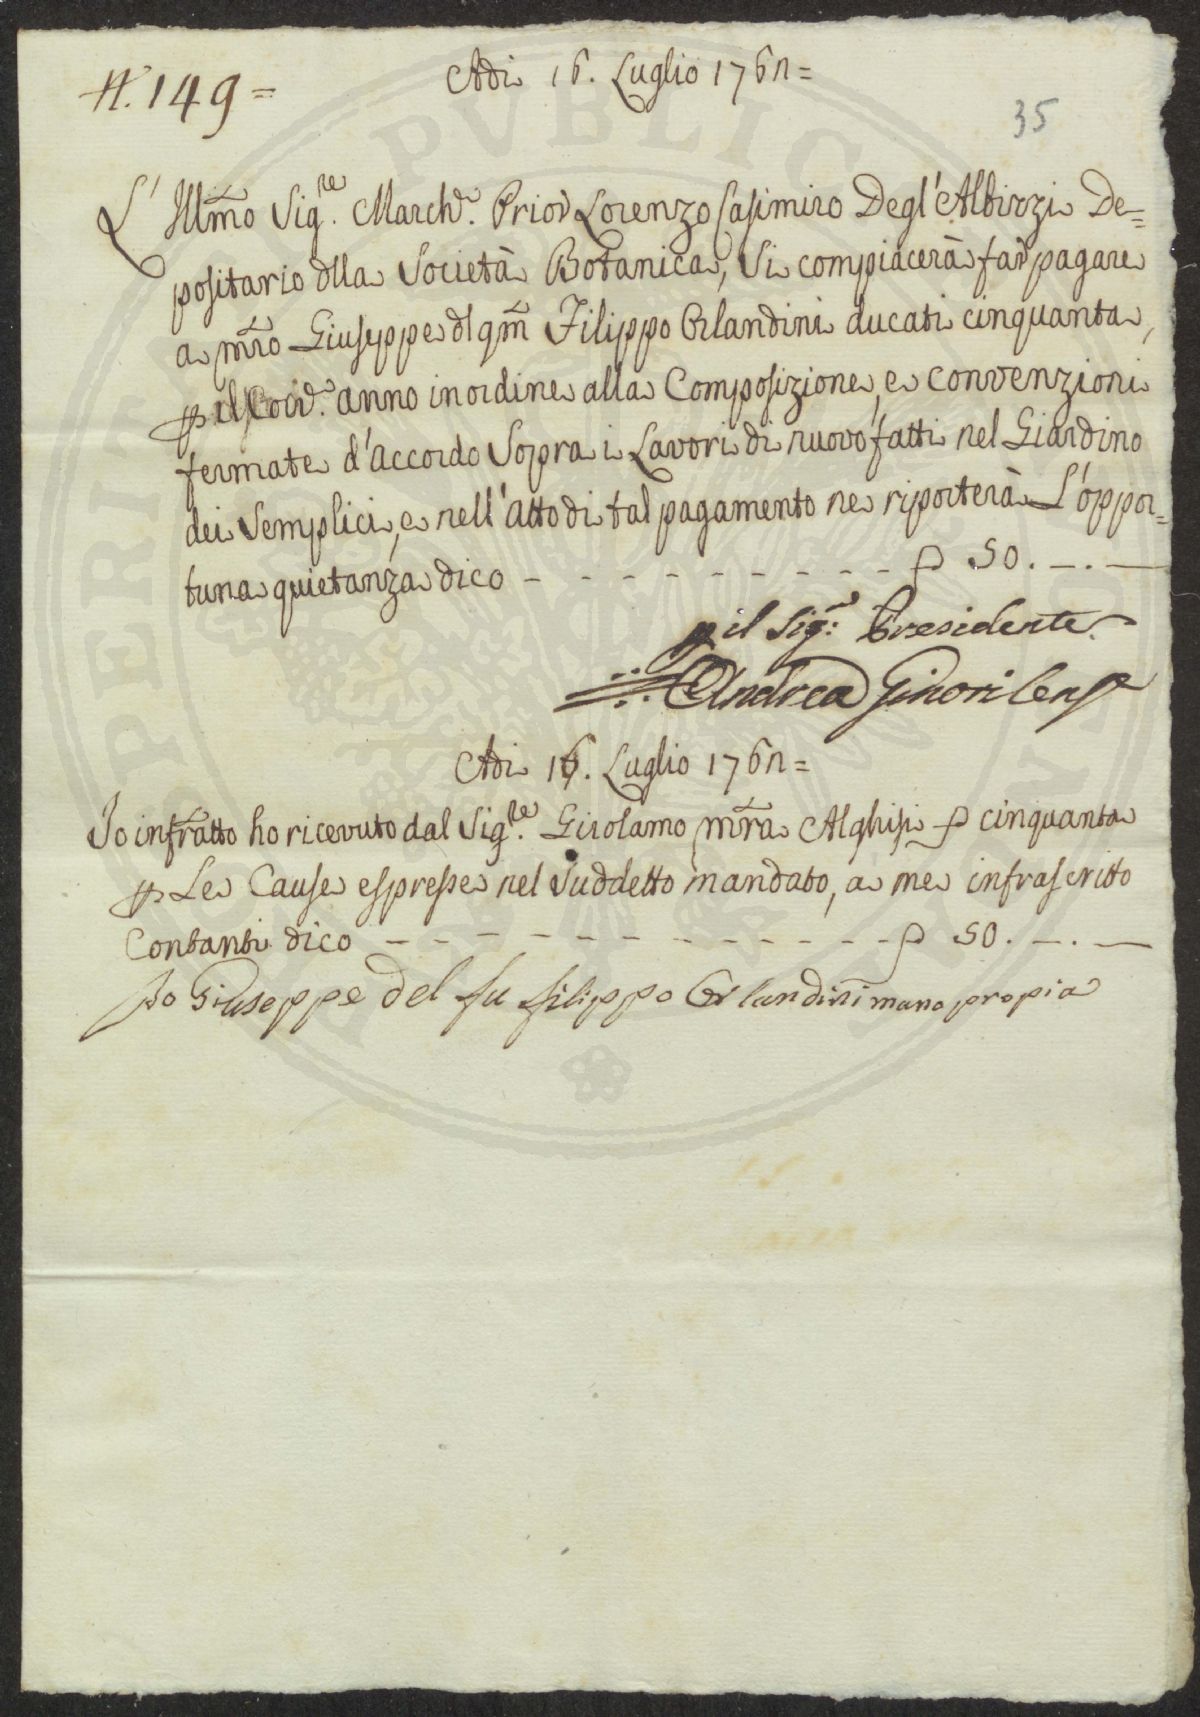 N. 149=
Adi 16. Luglio 176n=
35
L' Illmo Sig.re March.e Prior Lorenzo Casimiro Degl'Albizzi De=
positario dlla Società Botanica, Si compiacerà far pagare
a mro Giuseppe dl qm Filippo Orlandini ducati cinquanta,
p il Cor.e anno in ordine alla Composizione, e convenzioni
fermate d'Accordo Sopra i Lavori di nuovo fatti nel Giardino
dei Semplici, e nell'Atto di tal pagamento ne riporterà L'oppor=
tuna quietanza dico - - - - - - - - - - - 50. —. —
p il Sig.e Presidente
Andrea Ginori Cens.e
Adi 16. Luglio 176n=
Io infratto ho ricevuto dal Sig.re Girolamo mra Alghisi cinquanta
p Le Cause espresse nel Suddetto mandato, a me infrascritto
Contanti dico - - - - - - - - - - - - - - 50. —. —
Io Giuseppe del fu filippo Orlandini mano propia
PERITAT PVBLICAE